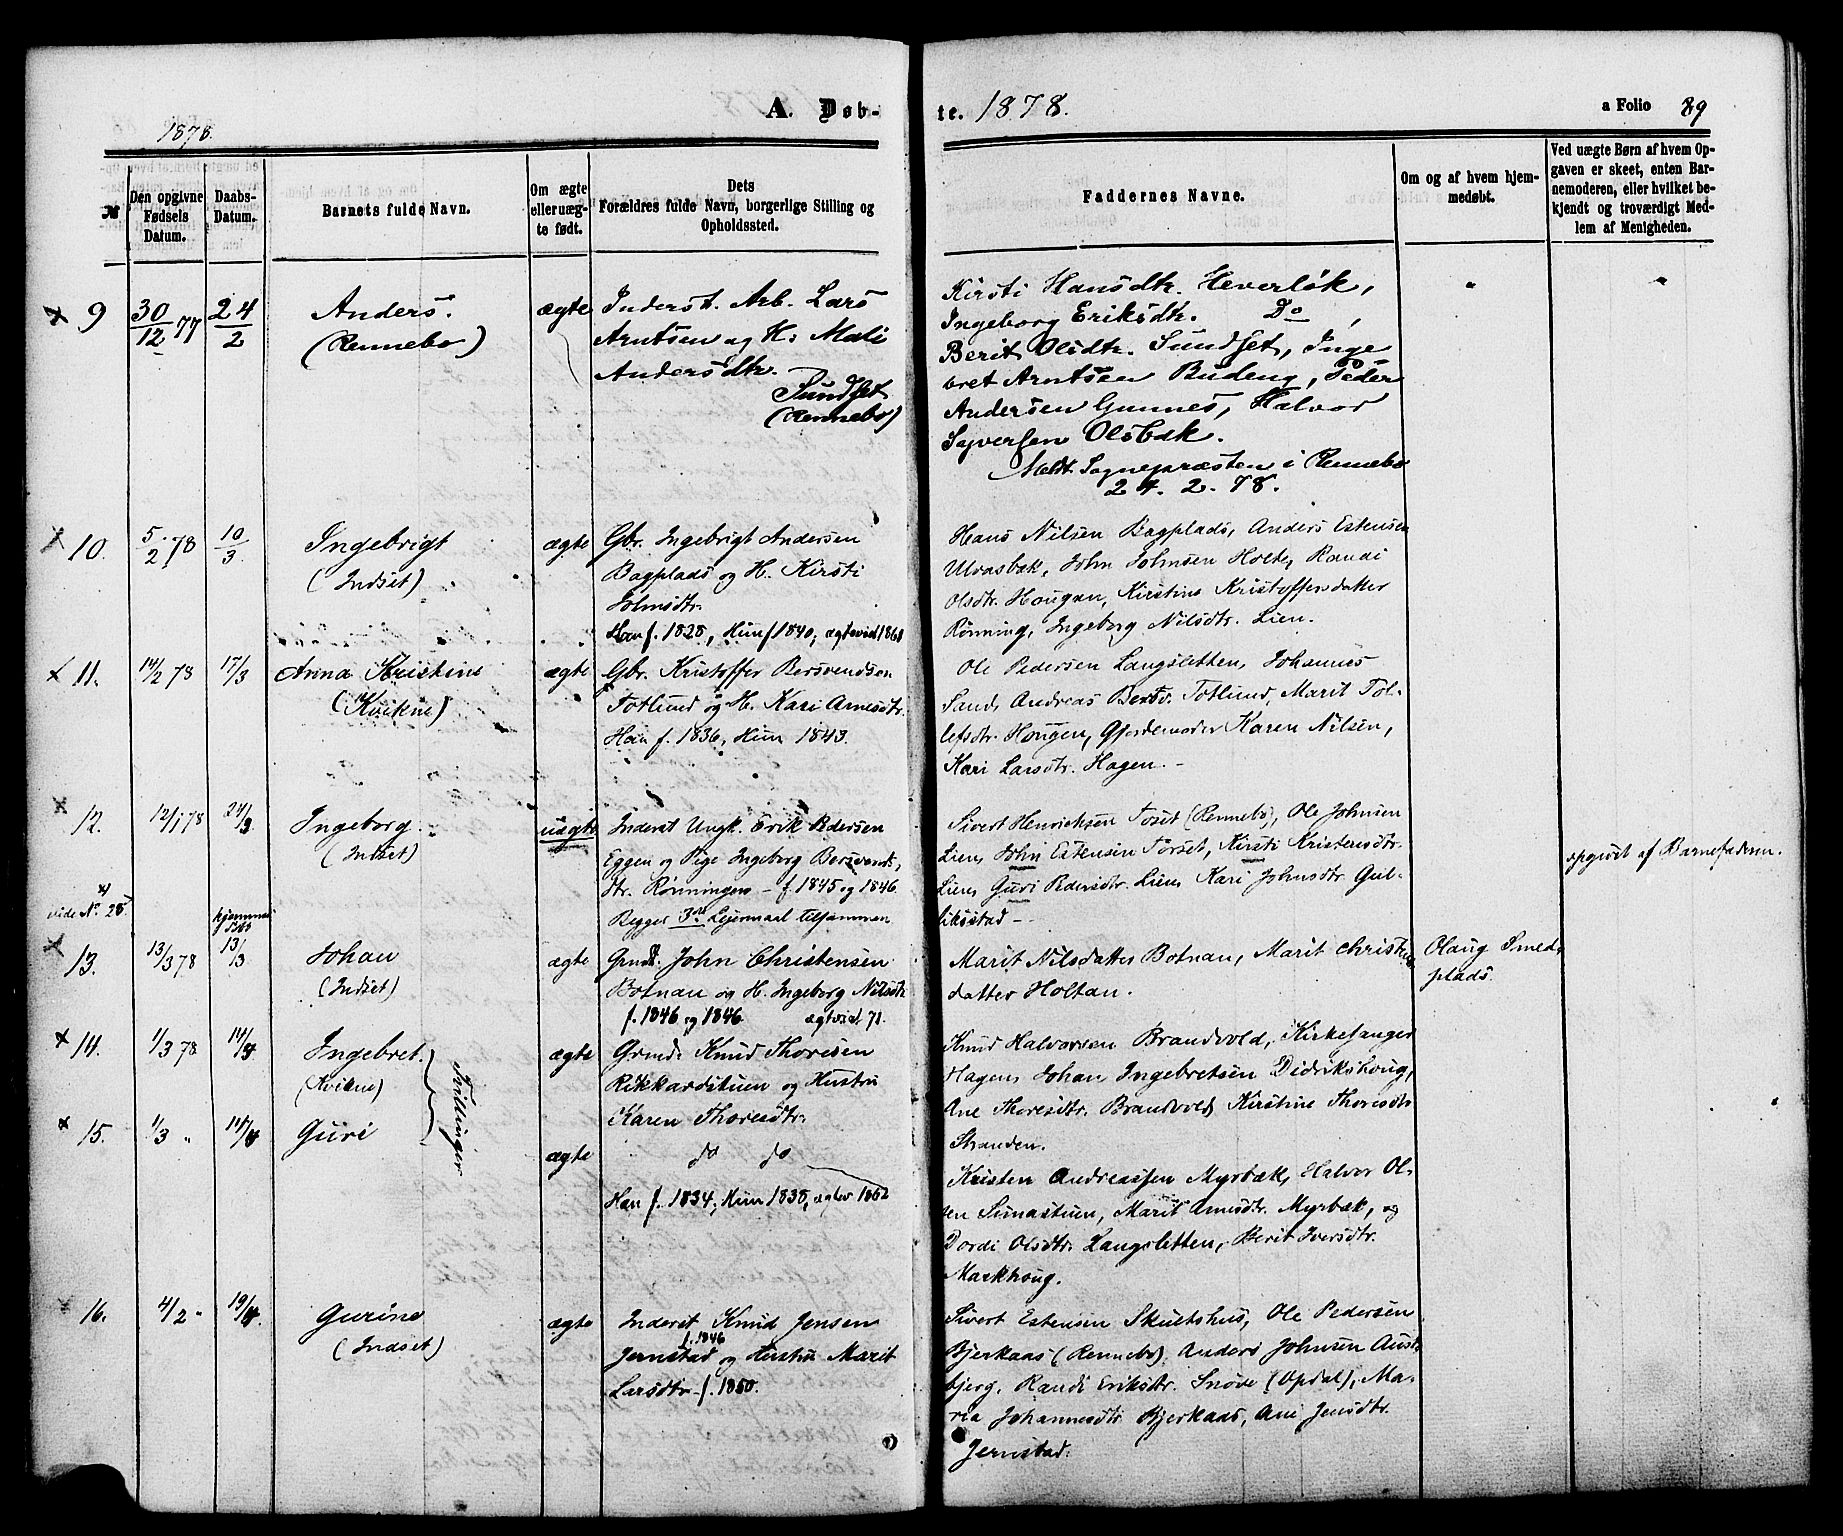 1878.
A. Døb-
te. 1878.
a Folio 89
№
Den opgivne Fødsels Datum.
Daabs-Datum.
Barnets fulde Navn.
Om ægte eller uæg-te født.
Dets Forældres fulde Navn, borgerlige Stilling og Opholdssted.
Faddernes Navne.
Om og af hvem hjem-medøbt.
Ved uægte Børn af hvem Op-gaven er skeet, enten Bar-nemoderen, eller hvilket be-kjendt og troværdigt Med-lem af Menigheden.
x 9
30/12 77
24/2
Anders.
(Rennebo)
ægte
Inderst. Arb. Lars
Arntsen og H. Mali
Andersdtr.
Sundset
(Rennebo)
Kirsti Hansdtr. Heverløk,
Ingeborg Eriksdtr. Do,
Berit Olsdtr. Sundset, Inge
bret Arntsen Budeng, Peder
Andersen Gunnes, Halvor
Syversen Olsbak.
Meldt Sognepræsten i Rennebo
24. 2. 78.
"
"
x 10.
5/2 78
10/3
Ingebrigt
(Indset)
ægte
Gbr. Ingebrigt Andersen
Bagplads og H. Kirsti
Johnsdtr.
Han f. 1828, Hun f 1840;
Hans Nilsen Bagplads, Anders Estensen
Ulvasbak, John Johnsen Holte, Randi
Olsdtr. Hougan, Kirstine Kristoffersdatter
Rønning, Ingeborg Nilsdtr. Lien.
x 11.
14/2 78
17/3
Anna Kristine
(Kvikne)
ægte
Gbr. Kristoffer Bersvendsen
Totlund og H. Kari Arnesdtr.
Han f. 1836, Hun 1843.
Ole Pedersen Langsletten, Johannes
Sand, Andreas Bersv. Totlund, Marit Tol-
lefsdtr. Hougen, Gjordemoder Karen Nilsen,
Kari Larsdtr. Hagen. -
x 12.
12/1 78
24/3
Ingeborg.
(Indset)
uægte
Inderst Ungk. Erik Pedersen
Eggen og Pige Ingeborg Bersvends-
dtr. Rønningen - f. 1845 og 1846
Begges 3die Leiermaal tilsammen
Sivert Henrichsen Toset (Rennebo), Ole Johnsen
Lien, John Estensen Torset, Kirsti Kristensdtr.
Lien, Guri Pedersdtr. Lien, Kari Johnsdtr Gul-
liksstad -
opgivet af Barnefaderen.
vide No. 28.
x 13.
13/3 78
hjemme
døbt
13/3
Johan
(Indset)
ægte
Grndb. John Christensen
Botnan og H. Ingeborg Nilsdtr
f. 1846 og 1846. ægteviet 71.
Marit Nilsdatter Botnan, Marit Christens
datter Holtan.
Olaug Smed-
plads.
x 14.
1/3 78
14/4
Ingebret.
(Kvikne)
Tvillinger
ægte
Grunds. Knud Thoresen
Rikkardstuen og Hustru
Karen Thoresdtr.
Knud Halvorsen Brandvold, Kirkesanger
Hagen, Johan Ingebretsen Didrikshoug,
Ane Thoresdtr. Brandvold Kirstine Thoresdtr
Stranden.
x 15.
1/3 "
14/4
Guri
ægte
do do
Han f. 1834; Hun 1838, ægtev 1862
Kristen Andreassen Myrbæk, Halvor Ol-
sen Simastuen, Marit Arnesdtr. Myrbæk, og
Dordi Olsdtr. Langsletten, Berit Iversdtr.
Markhoug.
16.
4/2 "
19/4.
Gurine
(Indset)
ægte
Inderst Knud Jensen
f. 1846
Jernstad og Hustru Marit
Larsdtr f. 1850.
Sivert Estensen Skultshus, Ole Pedersen
Bjerkaas (Rennebo), Anders Johnsen Aust-
bjerg, Randi Eriksdtr. Snøve (Opdal), Ma-
ria Johannesdtr Bjerkaas, Ane Jensdtr.
Jernstad.